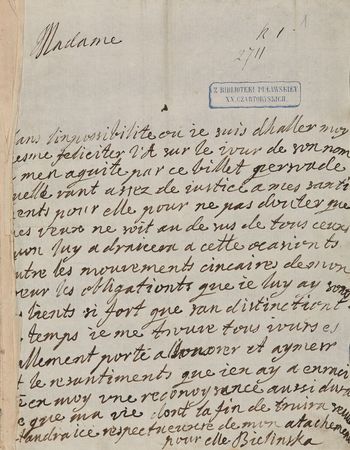 Madame
R 1. 1
2711
Z BIBLIOTEKI PUŁAWSKIEY
XX. CZARTORYSKICH.
dans limpossibilite ou ie suis dhaller moy
esme feliciter l'A sur le iour de son nom
men aquite par ce billet persvade
uelle rant assez de iustice a mes santi
ents pour elle pour ne pas douter que
es veux ne soit au desus de tous ceux
uon luy adraicera a cette ocasionts
tre les mouvements cincaires de mon
eur les obligationts que ie luy ay
tients si fort que san distinctiont
temps ie me trouve tous iours es
llement porté a lonorer et aymerr
t le resantiments que ien ay a enraci
é en moy vne reconoyssance aussi dura
e que ma vie dont la fin de truira
tandra ice respectueuse de mon atachement
pour elle Bielinska